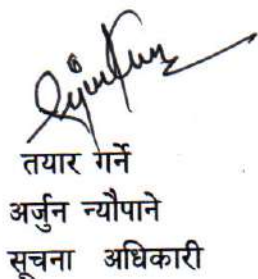 तयार गर्ने
अर्जुन न्यौपाने
सूचना अधिकारी